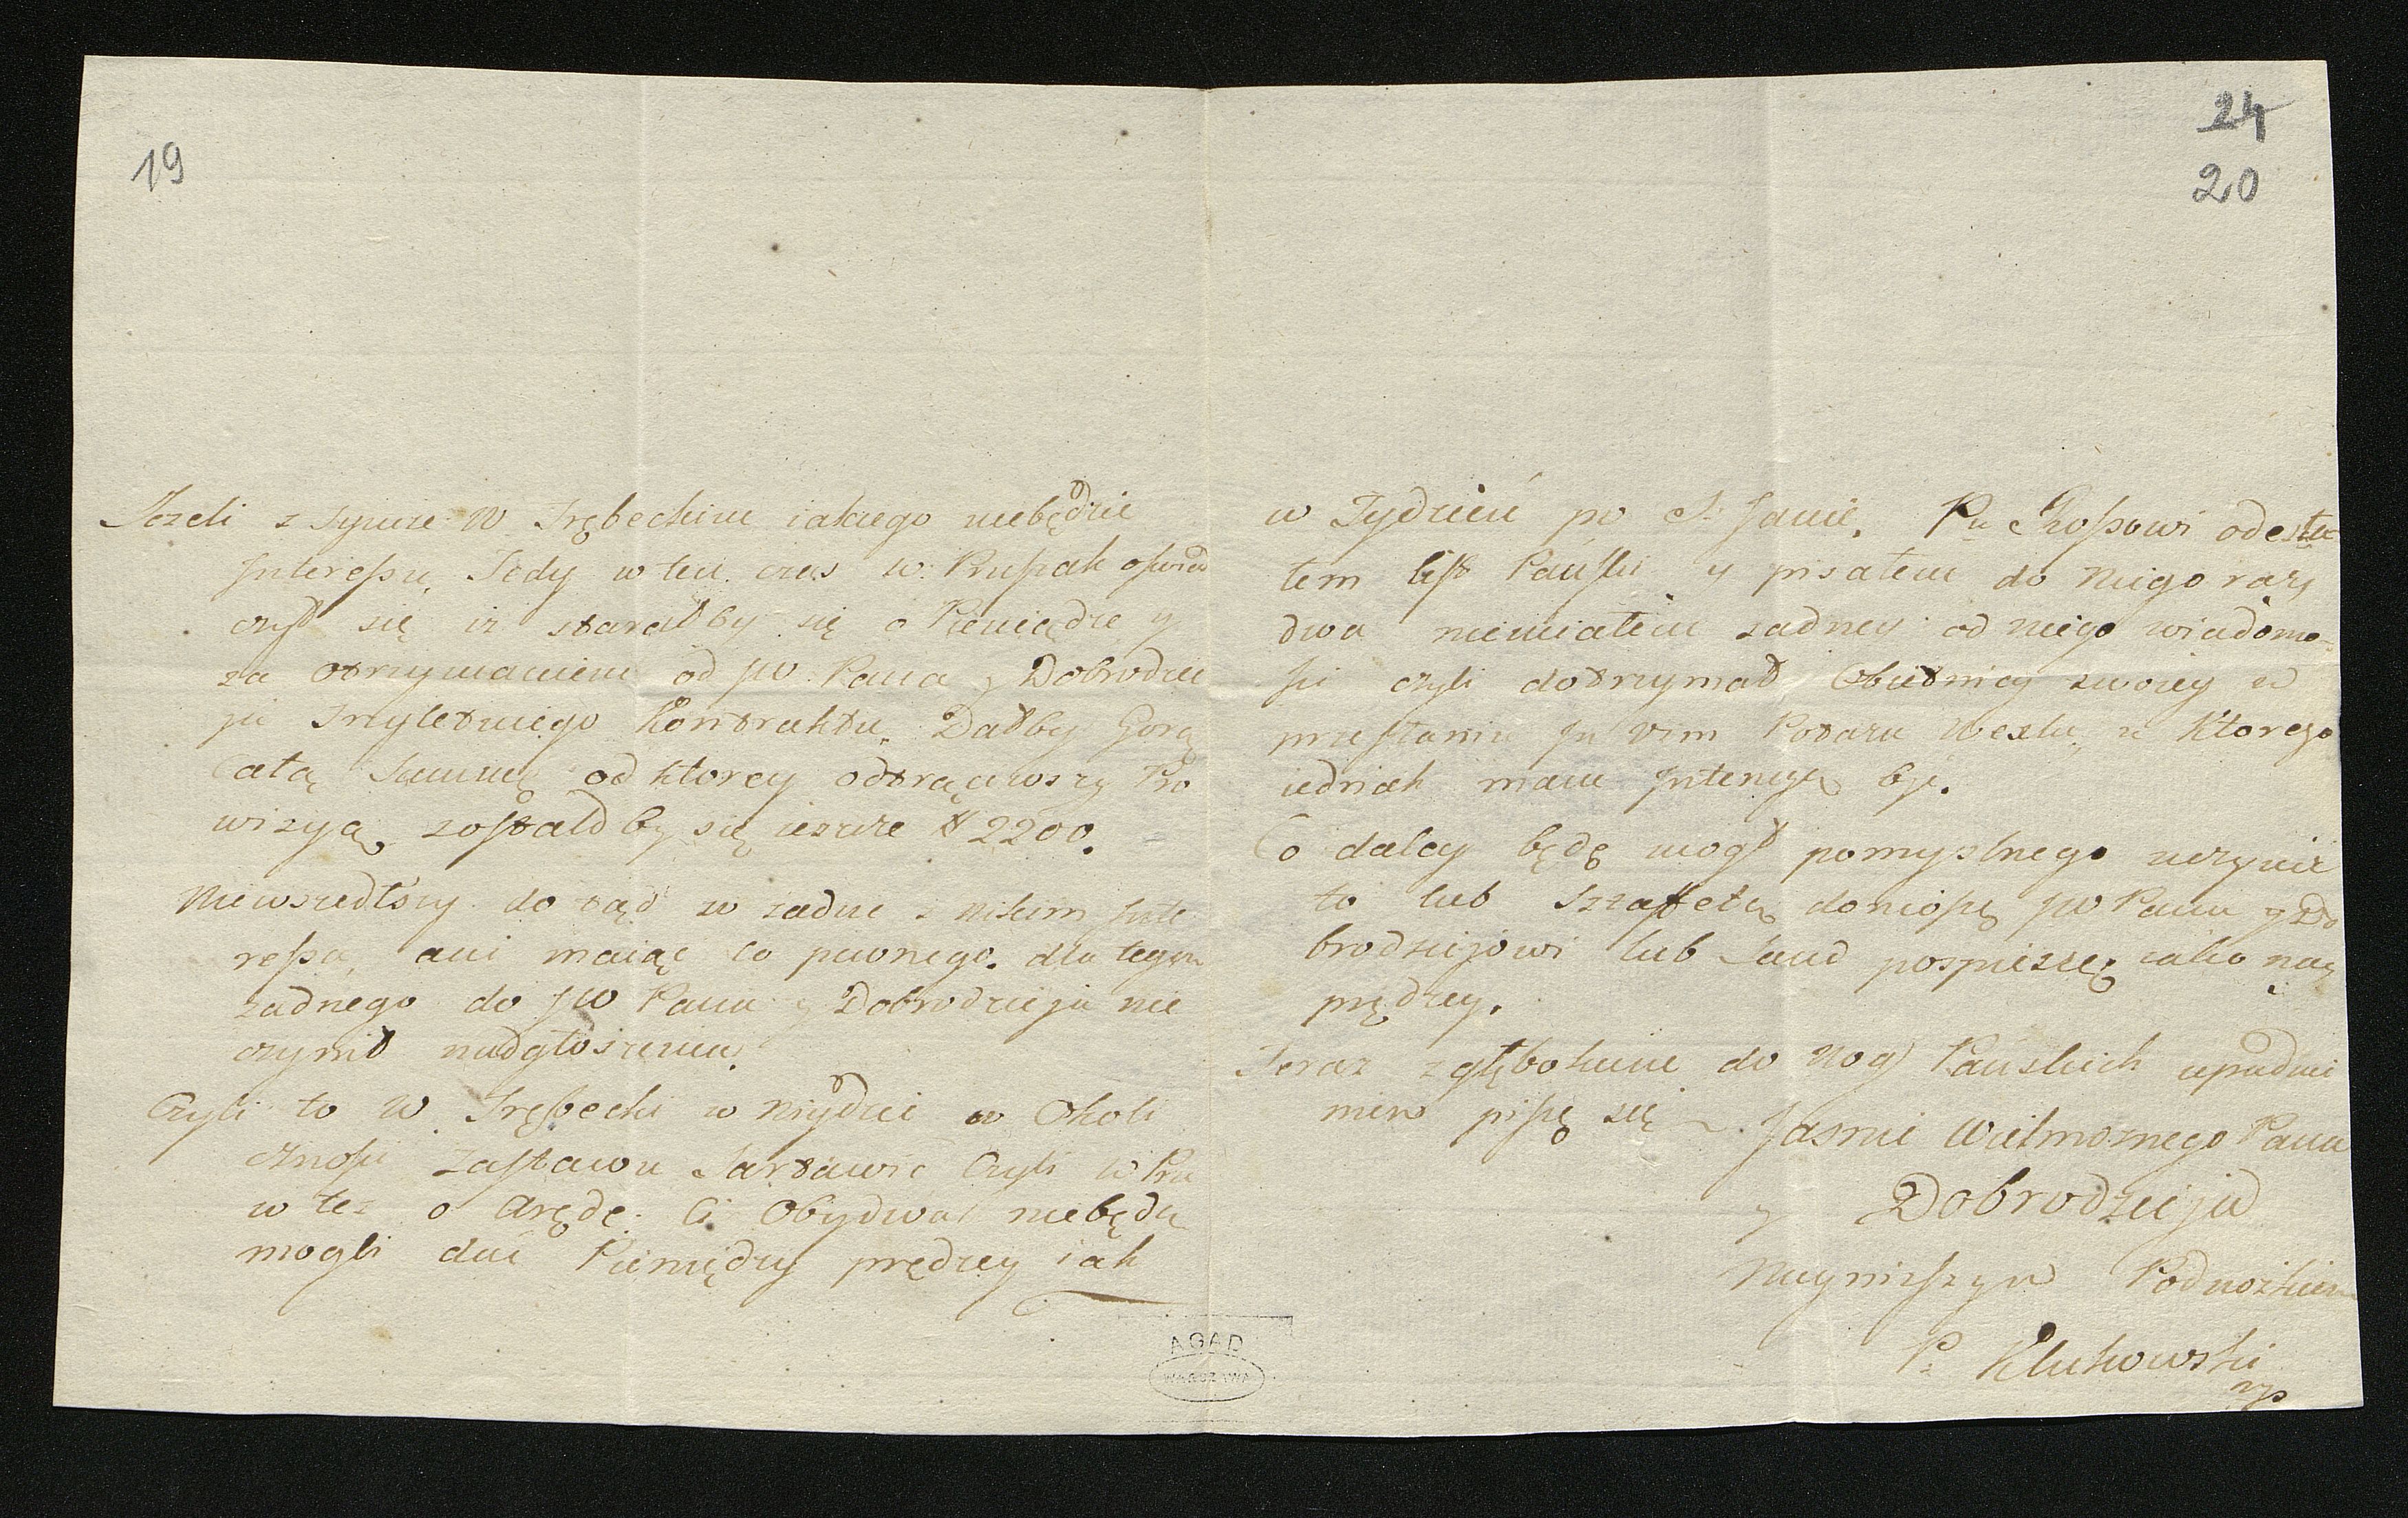 19
Jezeli z tymze W Trębeckim iakiego niebędzie
Interessu, Tedy w ten czas W. Prusak oswiad
czył się iz starałby się o Pieniądze y
za otrzymaniem od JW. Pana y Dobrodzie
ja Trzyletniego Kontraktu, Dałby Gorą
Całą Summę od ktorey odtrąciwszy Pro
wizyą, zostałoby się ieszcze # 2200.
Niewszedłszy do tąd w zadne z nikim Inte
ressa, ani maiąc co pewnego, dla tegom
zadnego do JW Pana y Dobrodzieja nie
czynił nadgłoszenia.
Czyli to W. Trębecki w niydzie w Okoli
cznosci Zastawu Sartawic Czyli W Pru
w tez o Arędę. Ci Obydwai niebędą
mogli dać Pieniędzy prędzey iak
24
20
w Tydzień po S. Janie. Pu Rossowi odesła
łem list Pański y pisałem do niego razy
dwa niemiałem zadney od niego wiadomo
sci czyli dotrzymał Obietnicy swoiey w
przesłaniu In vim Potazu Wexlu, u Ktorego
iednak mam Intencyą byc.
Co daley będę mogł pomyslnego uczynić
to lub Sztaffetą doniosę JW Panu y Do
brodziejowi lub sam pospieszę iako nay
prędzey.
Teraz z głębokim do nog Pańskich upadnie
niem piszę się Jasnie Wielmoznego Pana
y Dobrodzieja
Nayniszszym Podnozkiem
P. Klukowski
mp
AGAD
WARSZAWA